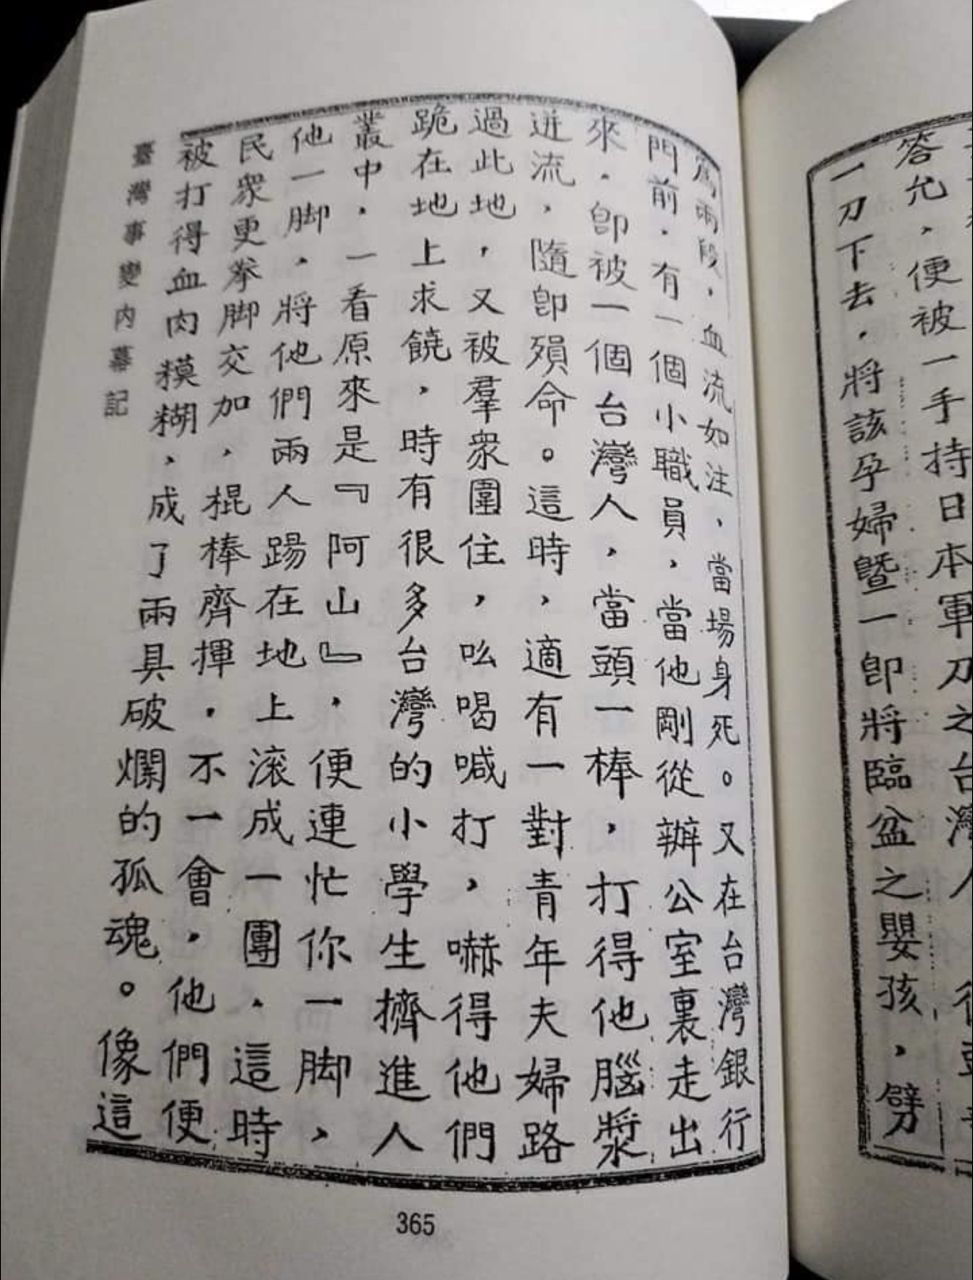 答允，便被一手持日本軍刀之台灣人，
一刀下去，將該孕婦暨一卽將臨盆之嬰孩，劈
爲兩段，血流如注，當場身死。又在台灣銀行
門前，有一個小職員，當他剛從辦公室裏走出
來，卽被一個台灣人，當頭一棒，打得他腦漿
迸流，隨卽殞命。這時，適有一對青年夫婦路
過此地，又被羣衆圍住，吆喝喊打，嚇得他們
跪在地上求饒，時有很多台灣的小學生擠進人
叢中，一看原來是『阿山』，便連忙你一脚，
他一脚，將他們兩人踼在地上滚成一團，這時
民衆更拳脚交加，棍棒齊揮，不一會，他們便
被打得血肉糢糊，成了兩具破爛的孤魂。像這
臺灣事變內幕記
365